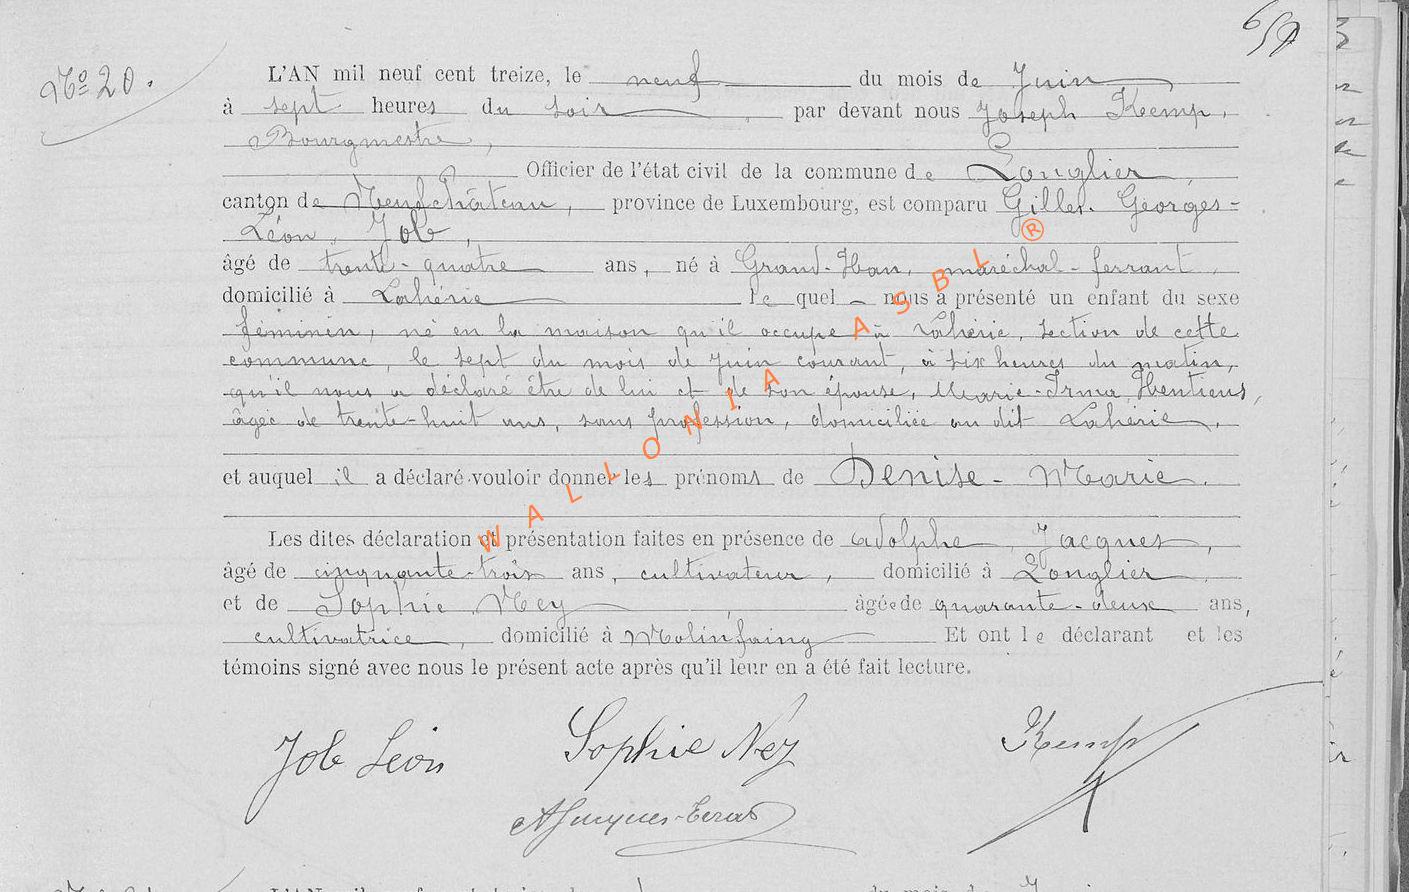 659
Nº 20.
L'AN mil neuf cent treize, le neuf du mois de Juin
à sept heures du soir, par devant nous Joseph Kemp,
Bourgmestre,
Officier de l'état civil de la commune de Longlier,
canton de Neufchâteau, province de Luxembourg, est comparu Gilles-Georges-
Léon Job,
âgé de trente-quatre ans, né à Grand-Han, maréchal-ferrant,
domicilié à Lahérie lequel nous a présenté un enfant du sexe
féminin, né en la maison qu'il occupe à Lahérie, section de cette
commune, le sept du mois de Juin courant, à six heures du matin,
qu'il nous a déclaré être de lui et de son épouse, Marie-Irma Hentiens,
âgée de trente-huit ans, sans profession, domiciliée au dit Lahérie,
et auquel il a déclaré vouloir donner les prénoms de Denise-Marie.
Les dites déclaration et présentation faites en présence de Adolphe Jacques,
âgé de cinquante-trois ans, cultivateur, domicilié à Longlier,
et de Sophie Ney, âgée de quarante-deux ans,
cultivatrice, domicilié à Molinfaing Et ont le déclarant et les
témoins signé avec nous le présent acte après qu'il leur en a été fait lecture.
Job Léon Sophie Ney Kemp
AJacques
WALLONIA ASBL ®